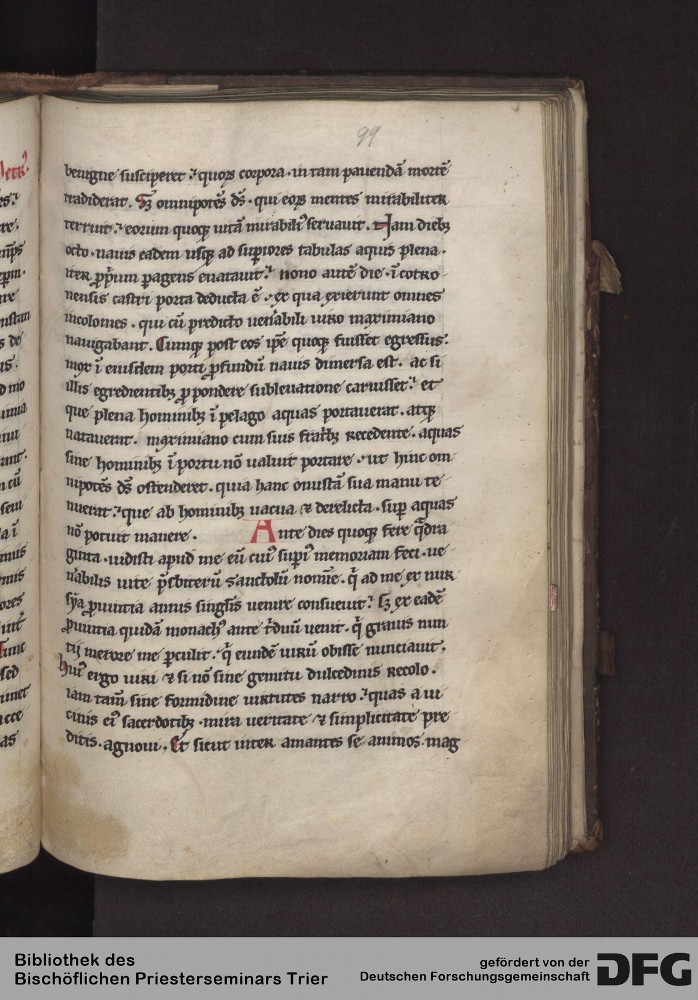 99
benigne susciperet · quoꝝ corpora · in tam pauendā mortē
tradiderat. Sꝫ omnipotēs d̄s · qui eoꝝ mentes mirabiliter
terruit · eorum quoqꝫ uitā mirabili᷒ seruauit. Iam diebꝫ
octo · nauis eadem usqꝫ ad supiores tabulas aquis plena ·
iter ꝓp̄um ꝑagens enatauit · nono autē die · ī cotro
nensis castri porta deducta ē · ex qua exierunt omnes
incolomes · qui cū predicto uen̄abili uiro maximiano
nauigabant. Cumqꝫ post eos ip̄e quoqꝫ fuisset egressus ·
mox ī eiusdem porti ꝓfundū nauis dimersa est · ac si
illis egredientibꝫ ꝓ pondere subleuatione caruisset · et
que plena hominibꝫ ī pelago aquas portauerat · atqꝫ
natauerat · maximiano cum suis fratribꝫ recedente · aquas
sine hominibꝫ ī portu nō ualuit portare · ut hinc om
nipotēs d̄s ostenderet · quia hanc onustā sua manu te
nuerat · que ab hominibꝫ uacua ⁊ derelicta · sup aquas
nō potuit manere. Ante dies quoqꝫ fere q̄dra
ginta · uidisti apud me eū cui᷒ supi᷒ memoriam feci · ue
n̄abilis uite p̄sbiterū sanctolū nomīe · q̄ ad me ex nur
sya ꝓuintia annis singl̄is venire consueuit · Sꝫ ex eadē
ꝓuintia quidā monach᷒ ante t̄duū uenit · q̄ grauis nun
tij merore me ꝑculit · q̄ eundē uirū obisse nunciauit.
hui᷒ ergo uiri ⁊ si nō sine gemitu dulcedinis recolo ·
iam tam̄ sine formidine uirtutes narro · quas a ui
cinis ei᷒ sacerdotibꝫ · mira ueritate ⁊ simplicitate pre
ditis · agnoui. Et sicut inter amantes se animos · mag
Bibliothek des
Bischöflichen Priesterseminars Trier
gefördert von der
Deutschen Forschungsgemeinschaft
DFG